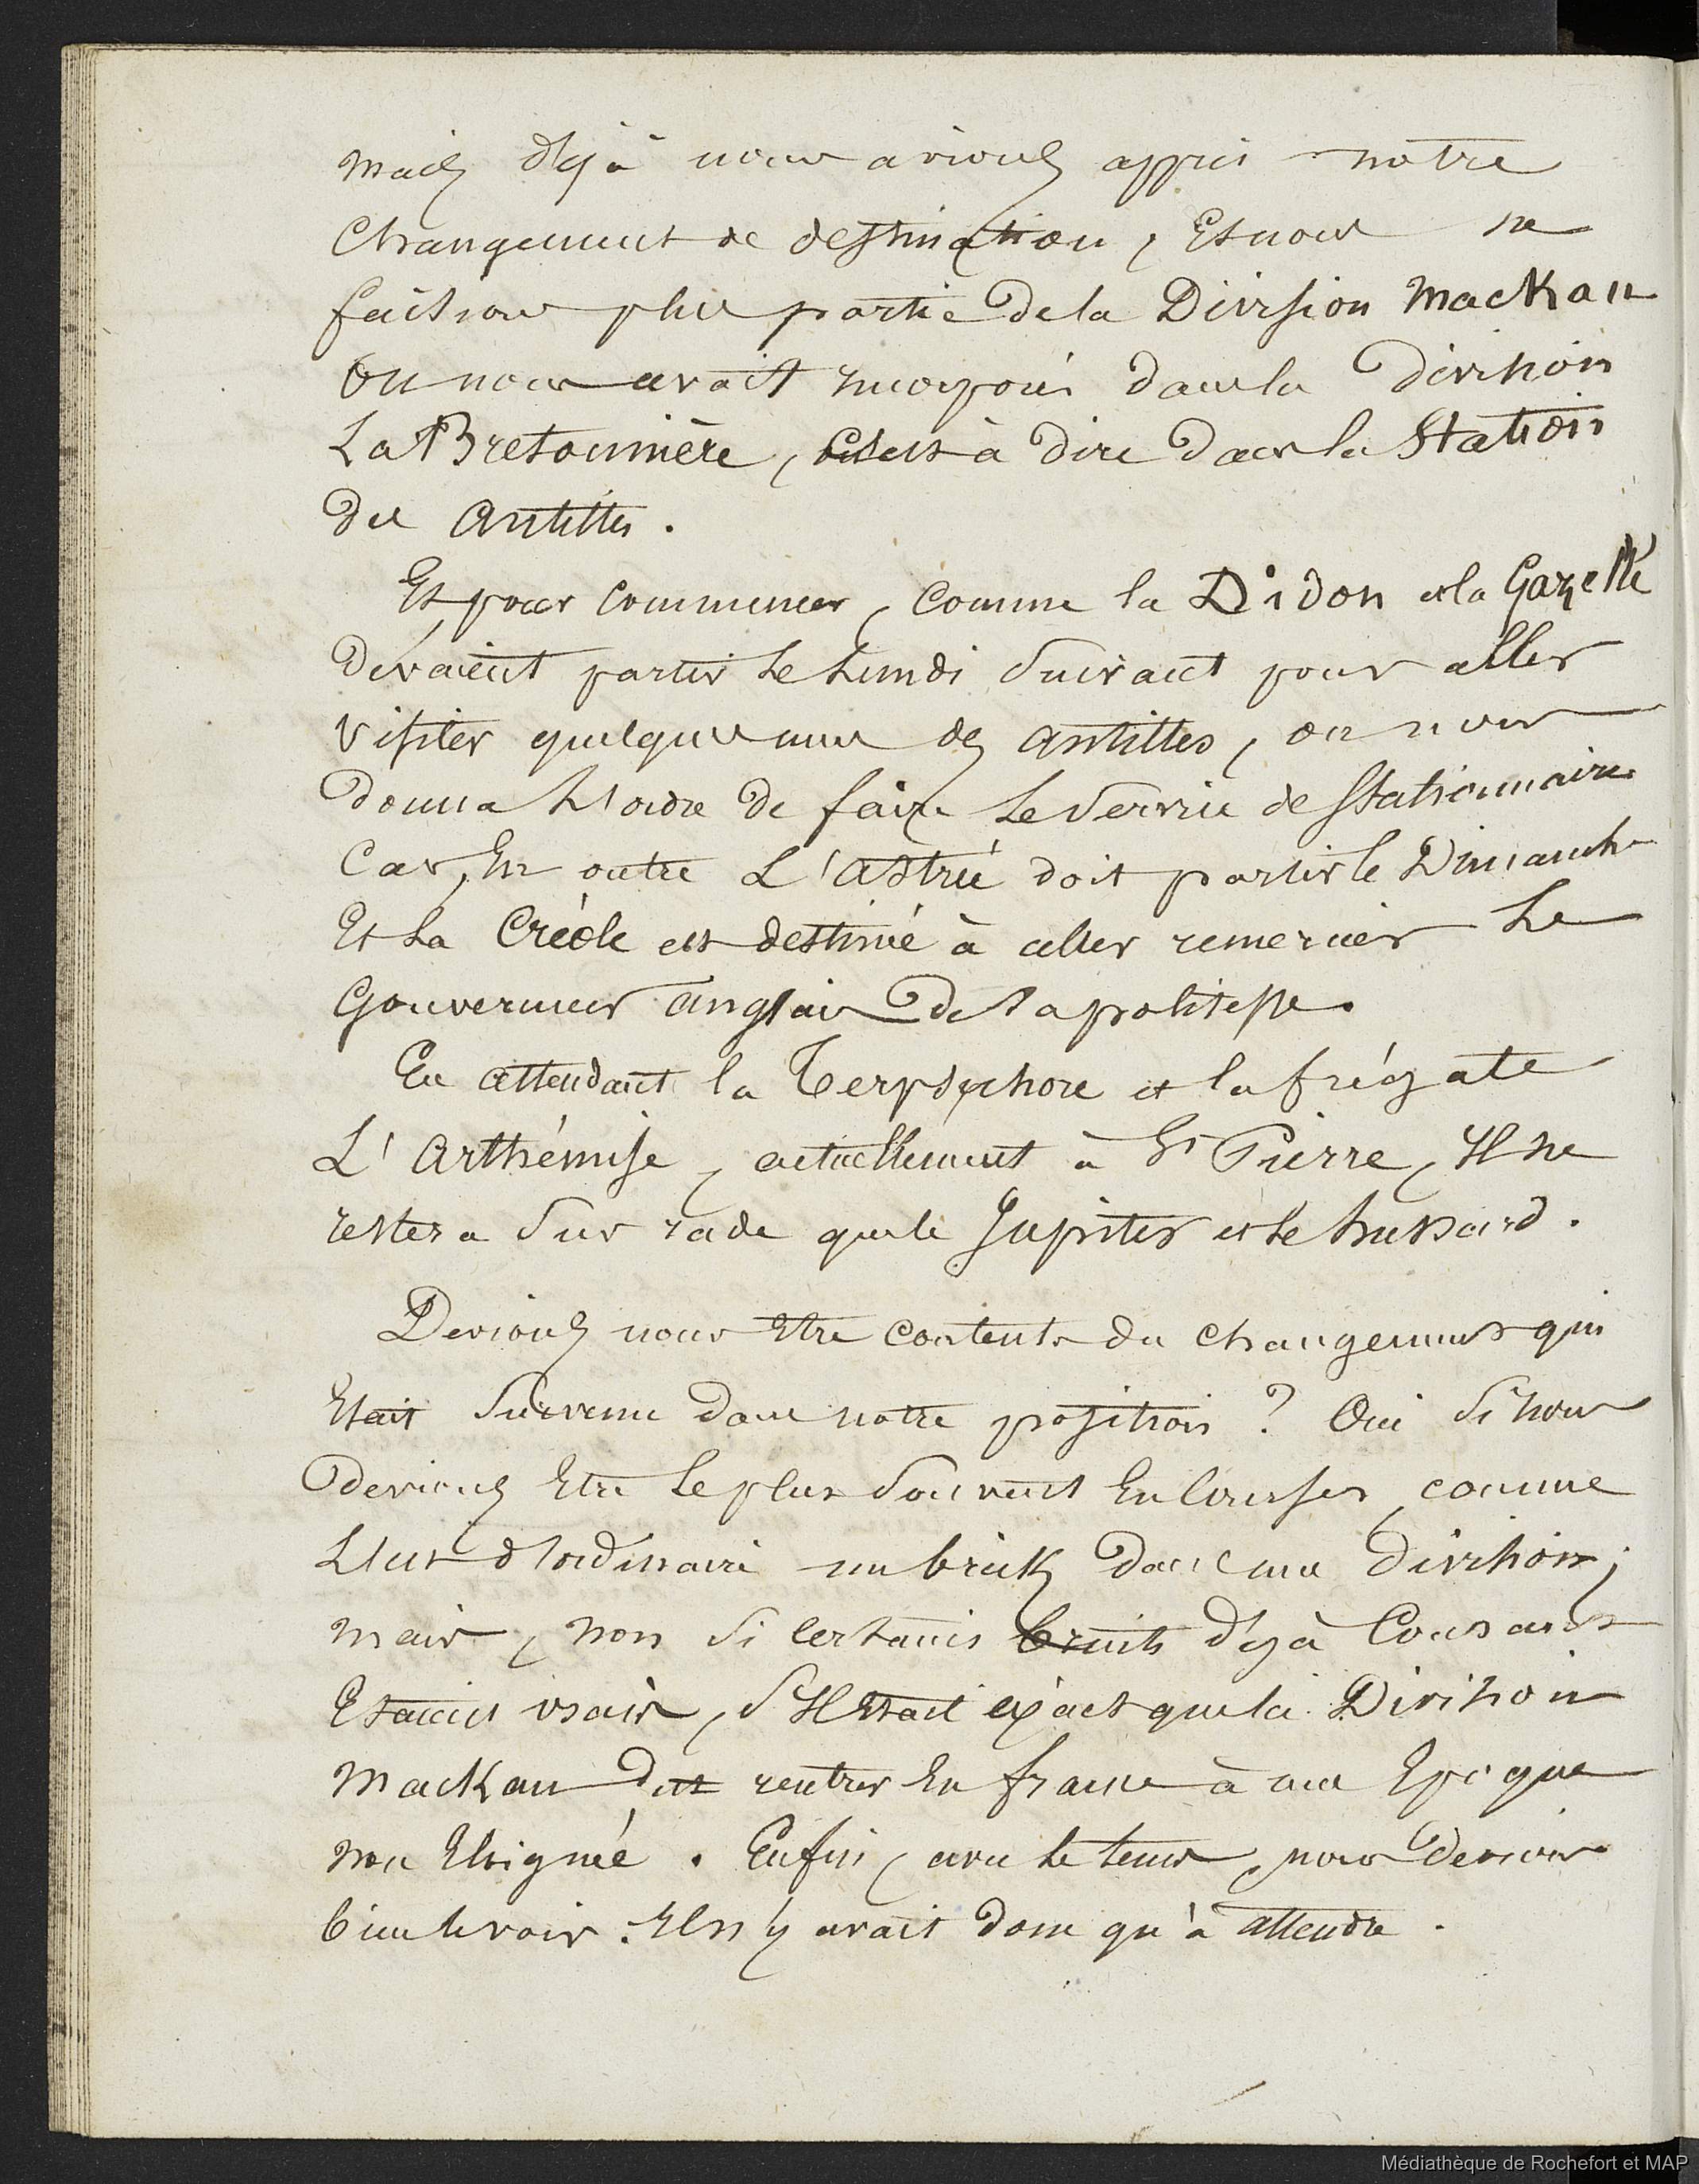 mais déjà nous avions appris notre
Changement de destination, Et nous ne
faisions plus partie de la Division Mackau
On nous avait incorporés dans la division
La Bretonnière, c'est à dire dans la Station
des Antilles.
Et pour commencer, comme la Didon et la Gazelle
devaient partir le Lundi suivant pour aller
visiter quelques unes des Antilles, on nous
donna l'ordre de faire le service de Stationnaire
Car, En outre L'Astrée doit partir le Dimanche
Et la Créole est destiné à aller remercier le
Gouverneur anglais de sa politesse.
En attendant la Terpsychore et la frégate
L'Arthémise, actuellement à St Pierre, Il ne
restera sur rade que le Jupiter et le hussard.
Devions nous Etre contents du changement qui
Etait survenu dans notre position ? Oui si nous
devions Etre le plus souvent En Courses, comme
L'est d'ordinaire un brick dans une division;
mais, non si certains bruits déjà Courants
Etaient vrais, s'Il Etait exact que la Division
Mackau dut rentrer En france à une Epoque
non Eloignée. Enfin, avec le tems, nous devions
bien le voir. Il n'y avait donc qu'à attendre.
Médiathèque de Rochefort et MAP